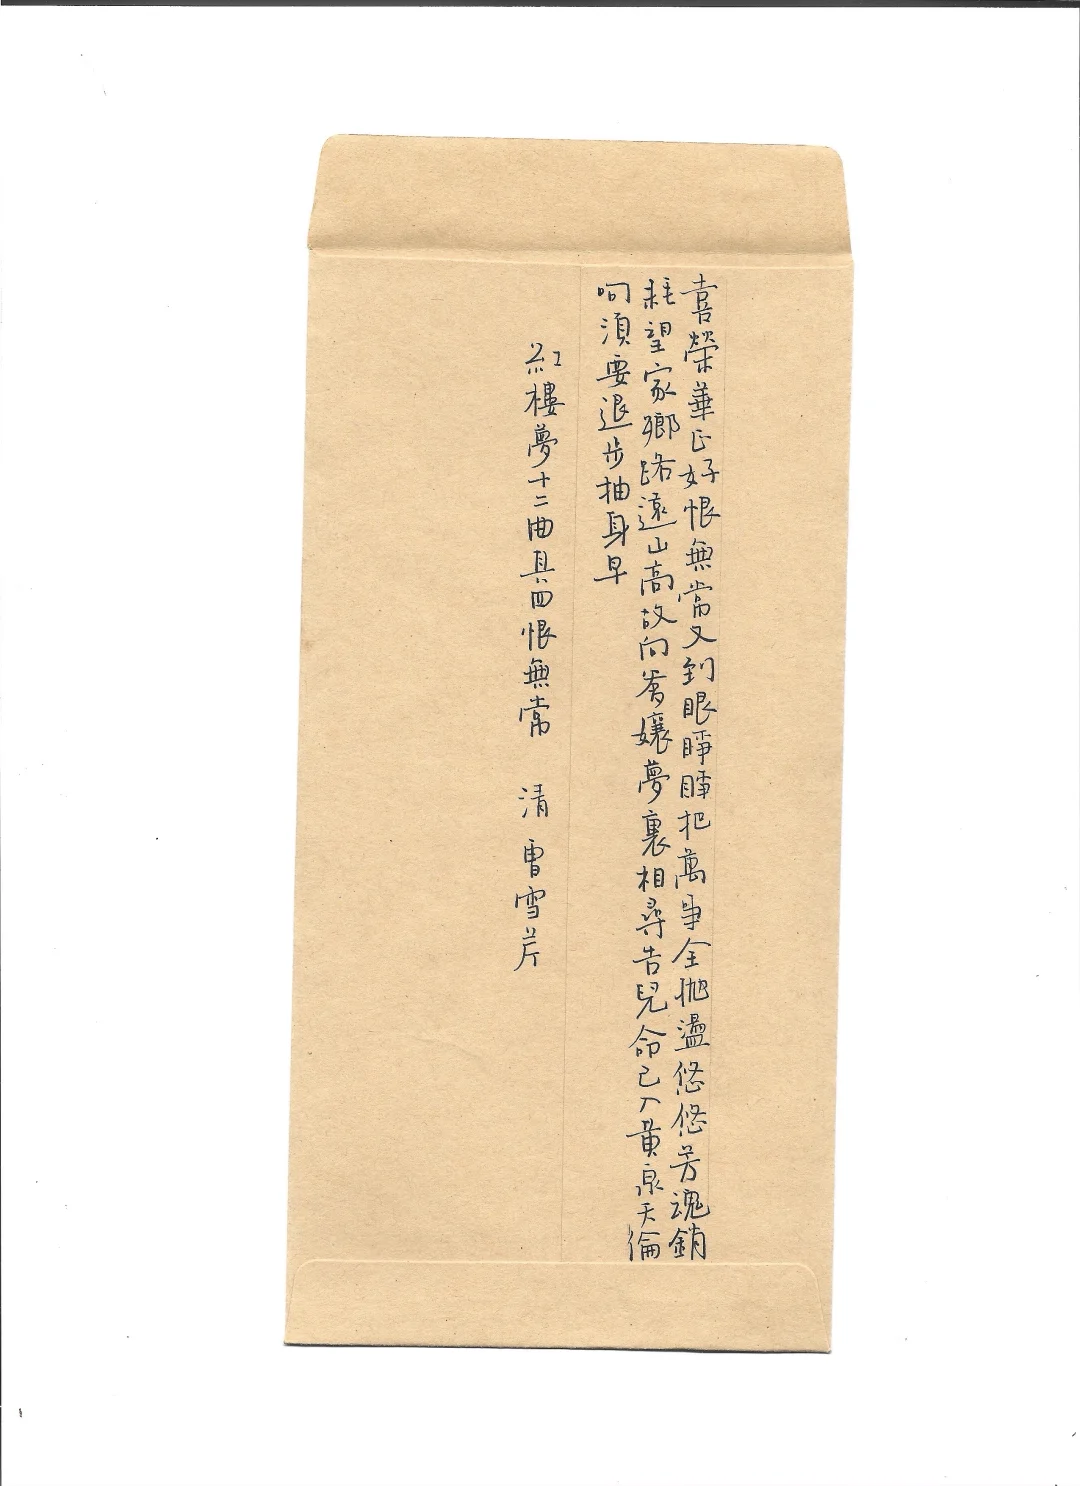 喜榮華正好恨無常又到眼睜睜把萬事全拋盪悠悠芳魂銷
耗望家鄉路遠山高故向爹孃夢裏相尋告兒命已入黃泉天倫
呵須要退步抽身早
紅樓夢十二曲其四恨無常 清 曹雪芹